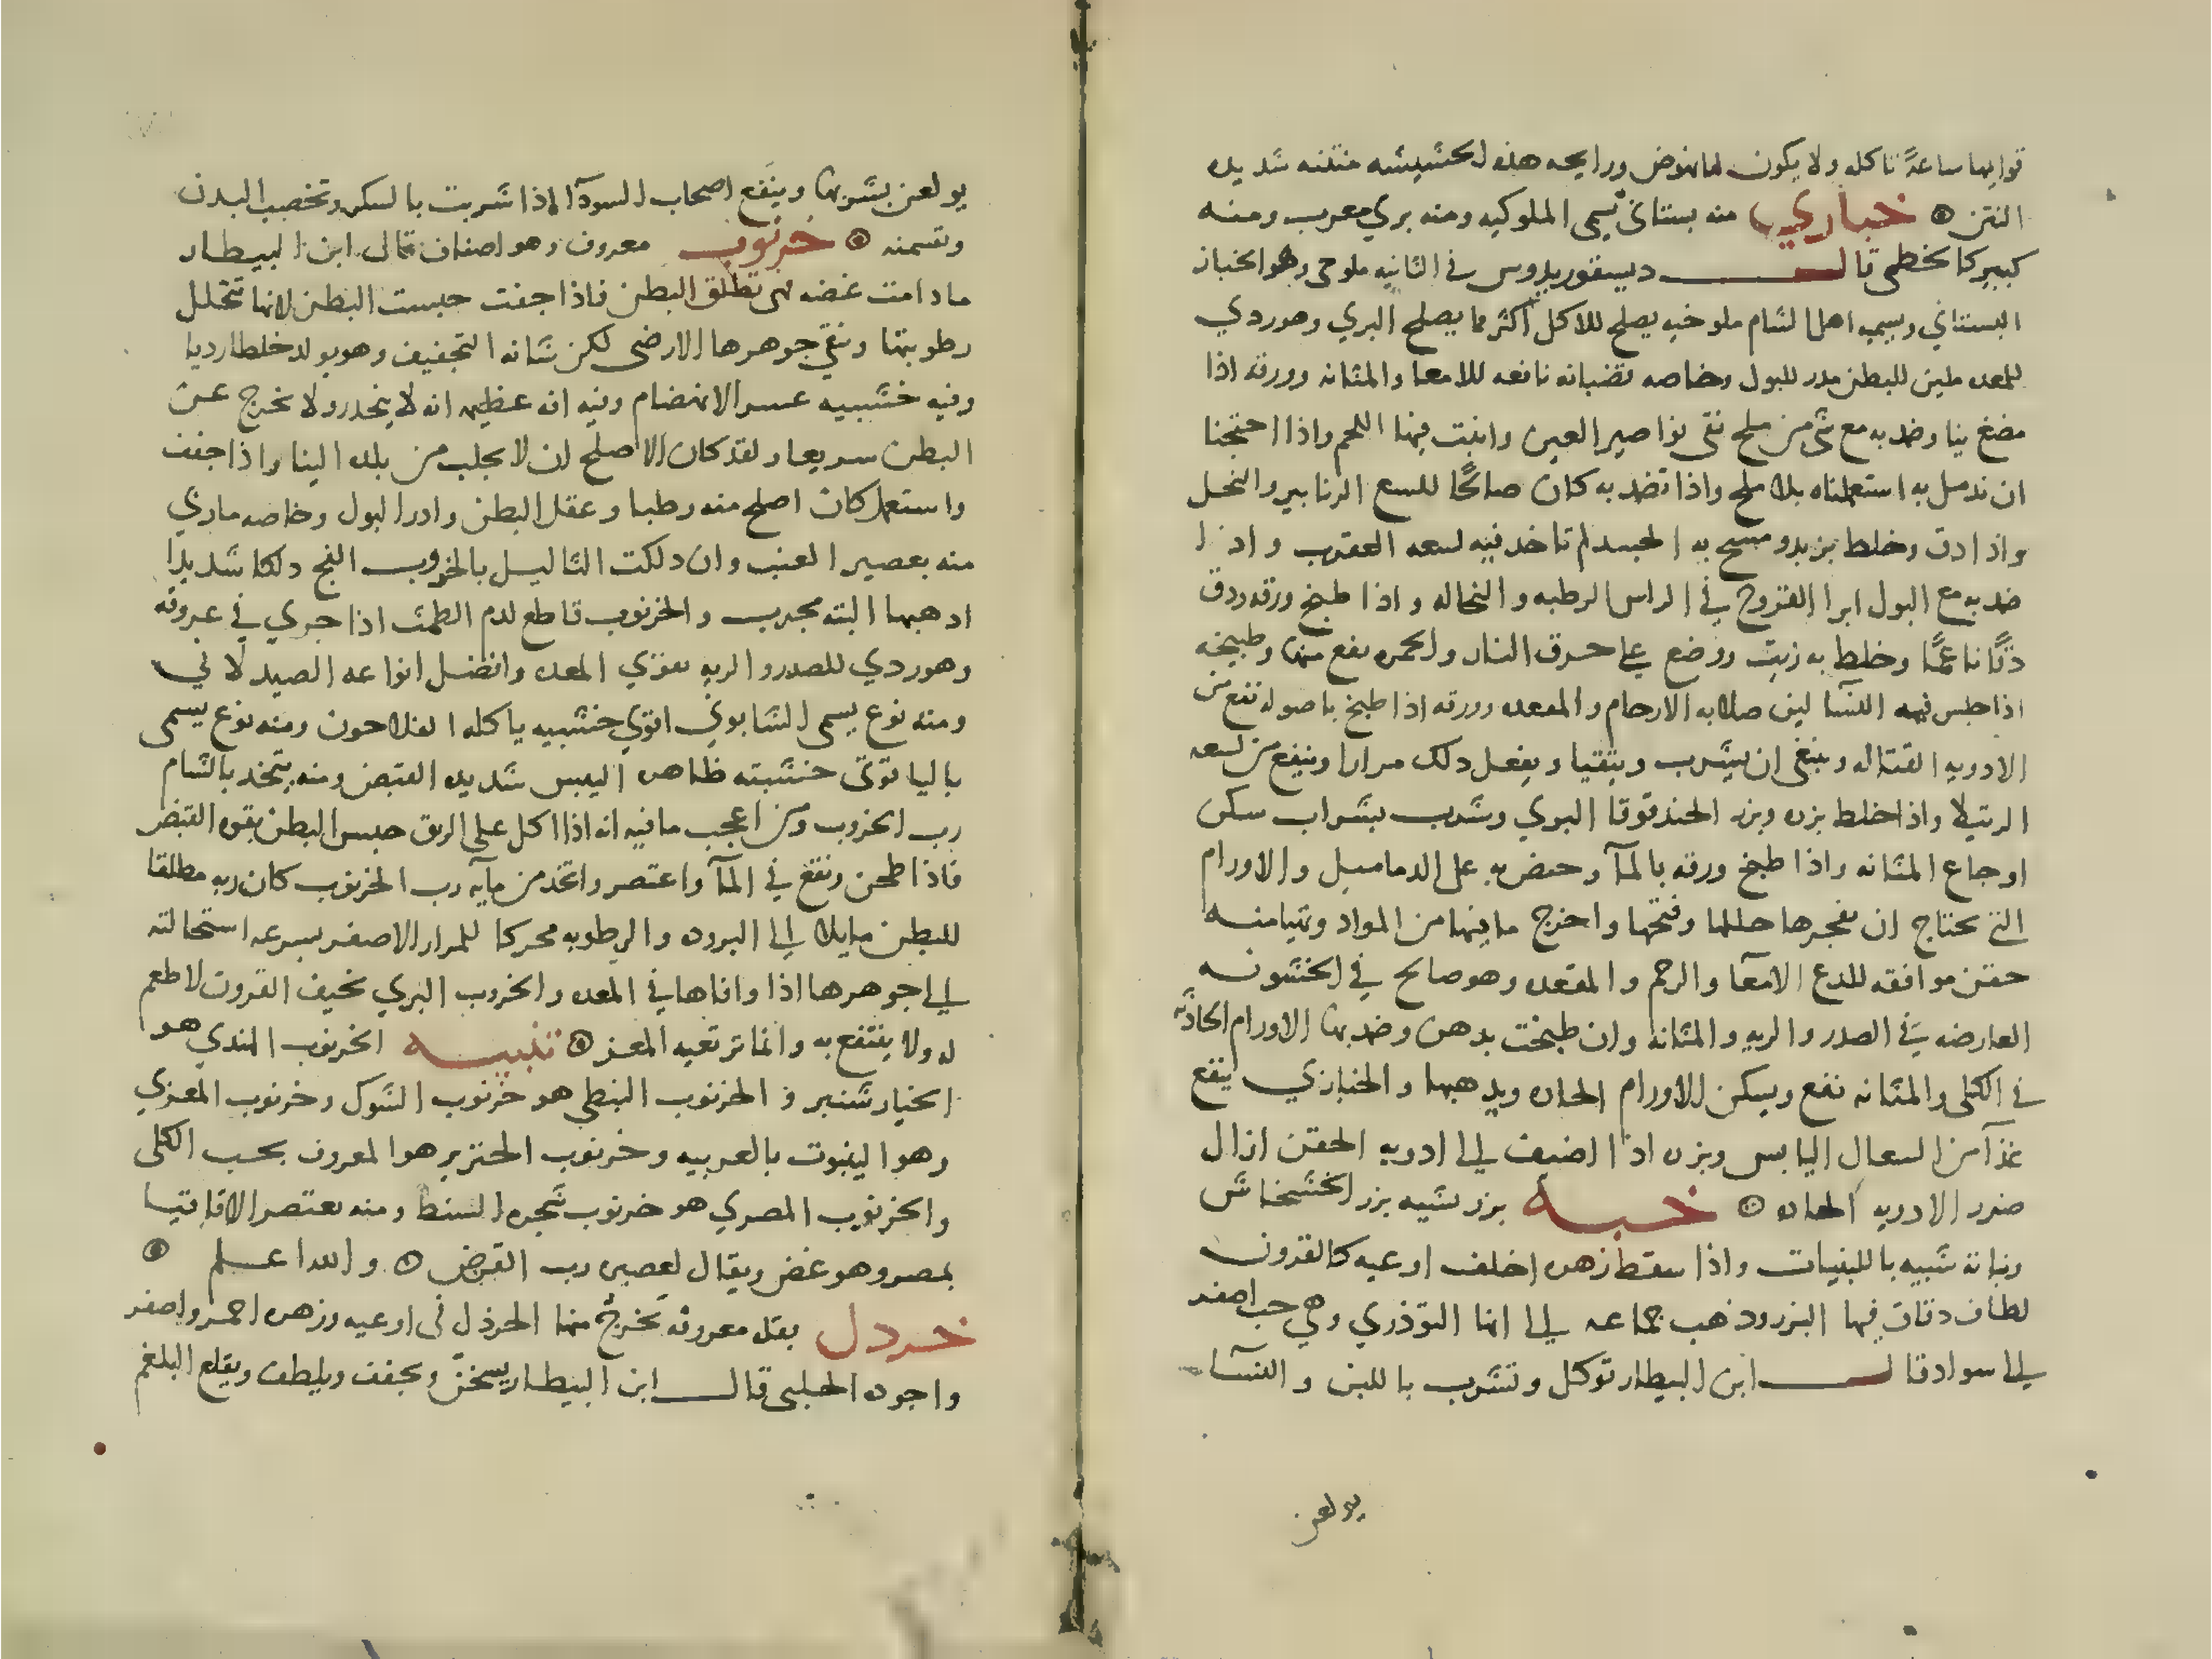 قوايمها ساعة تاكله ولا يكون لها نهوض ورايحه هذه الحشيشه منتنه شديده
النتن ۞ خبازي منه بستاني يسمى الملوكيه ومنه بري معرب ومنه
كبير كالخطمى قال ديسقوريدوس في الثانيه ملوخى وهو الخباز
البستاني ويسميه اهل الشام ملوخيه يصلح للاكل اكثر مما يصلح البري وهو ردي
للمعده ملين للبطن مدر للبول وخاصه قضبانه نافعه للامعا والمثانه وورقه اذا
مضغ نيا وضمد به مع شى من ملح نقى نواصير العين وانبت فيها اللحم واذا احتجنا
ان ندمل به استعملناه بلا ملح واذا تضمد به كان صالحًا للسع الزنابير والنحل
واذا دق وخلط بزيد ومسح به الجسد لم تاخد فيه لسعه العقرب واذا
ضمد به مع البول ابرا القروح في الراس الرطبه والنخاله واذا طبخ ورقه ودق
دقًا ناعمًا وخلط به زيت ووضع على حرق النار والحمره نفع منها وطبيخه
اذا جلس فيه النسا لين صلابه الارحام والمقعده وورقه اذا طبخ باصوله نفع من
الادويه القتاله وينبغى ان يشرب ويتقيا ويفعل دلك مرارا وينفع من لسعه
الرتيلا واذا خلط بزره وبزر الحندقوقا البري وشرب بشراب سكن
اوجاع المثانه واذا طبخ ورقه بالمآ وحض به على الدماميل والاورام
التى تحتاج ان تفجرها حللها وفتحها واخرج ما فيها من المواد وتهيا منه
حقن موافقه للدع الامعآ والرحم والمقعده وهو صالح في الخشونه
العارضه في الصدر والريه والمثانه وان طبخت بدهن وضمد بها الاورام الحادثه
في الكلى والمثانه نفع ويسكن الاورام الحاره ويدهبها والخبازي ينفع
غذآ من السعال اليابس وبزره اذا اضيف الى ادويه الحقن ازال
ضرر الادويه الحاده ۞ خبه بزر شبيه بزر الخشخاش
ونباته شبيه باللبنيات واذا سقط زهره اخلف اوعيه كالقرون
لطاف دقاق فيها البزر وذهب جماعه الى انها التوذري وهي حب اصفر
الى سواد قال ابن البيطار توكل وتشرب باللبن والنسآ
يولعن
يولعن بشربها وينفع اصحاب السودآ اذا شربت بالسكر وتخصب البدن
وتسمنه ۞ خرنوب معروف وهو اصناف قال ابن البيطار
مادامت غضه فهى تطلق البطن فاذا جفت حبست البطن لانها تتحلل
رطوبتها وتبقى جوهرها الارضى لكن شانه التجفيف وهو يولد خلطا رديا
وفيه خشبيه عسر الانهضام وفيه افه عظيمه انه لا ينحدر ولا يخرج عن
البطن سريعا ولقد كان الاصلح ان لا يجلب من بلده الينا واذا جفف
واستعمل كان اصلح منه رطبا وعقل البطن وادر البول وخاصه ما ربي
منه بعصير العنب وان دلكت الثاليل بالخروب الفج دلكا شديدا
ادهبها البته مجرب والخرنوب قاطع لدم الطمث اذا جري في عروقه
وهو ردي للصدر والريه مقوي المعده وافضل انواعه الصيدلاني
ومنه نوع يسمى الشابوني اقوي خشبيه ياكله الفلاحون ومنه نوع يسمى
باليا قوتى خشبته ظاهره اليبس شديده القبض ومنه يتخد بالشام
رب الخروب ومن اعجب ما فيه انه اذا اكل على الريق حبس البطن بقوه القبض
فاذا طحن ونقع في المآ واعتصر واتخد من مايه رب الخرنوب كان ربه مطلقا
للبطن مايلا الى البروده والرطوبه محركا للمرار الاصفر بسرعه استحالته
الى جوهرها اذا وافاها في المعده والخروب البري نحيف القرون لا طعم
له ولا ينتفع به وانما ترتعيه المعز ۞ تنبيه الخرنوب الهندي هو
الخيار شنبر والخرنوب النبطى هو خرنوب الشوك وخرنوب المعزي
وهو الينبوت بالعربيه وخرنوب الخنزير هو المعروف بحب الكلى
والخرنوب المصري هو خرنوب شجره السنط ومنه يعتصر الاقاقيا
بمصر وهو غض ويقال لعصيره رب القرض ۞ والله اعلم ۞
خردل بقله معروفه يخرج منها الخردل فى اوعيه وزهره احمر واصفر
واجوده الحلبى قال ابن البيطار يسخن ويجفف ويلطف ويقلع البلغم